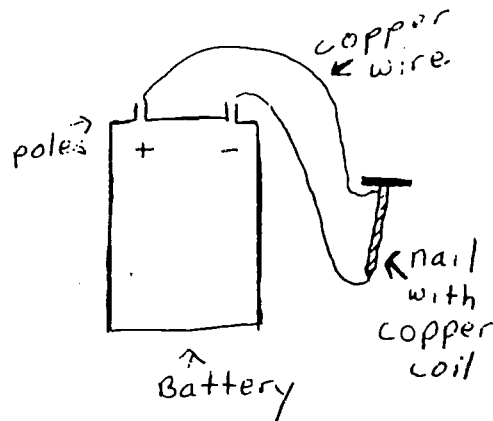 copper
wire
poles
+ -
nail
with
copper
coil
Battery